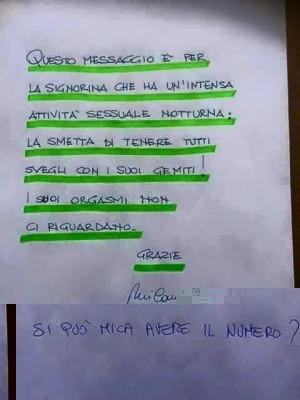 QUESTO MESSAGGIO È PER
LA SIGNORINA CHE HA UN'INTENSA
ATTIVITA' SESSUALE NOTTURNA:
LA SMETTA DI TENERE TUTTI
SVEGLI CON I SUOI GEMITI!
I SUOI ORGASMI NON
CI RIGUARDANO.
GRAZIE
SI PUO' MICA AVERE IL NUMERO?